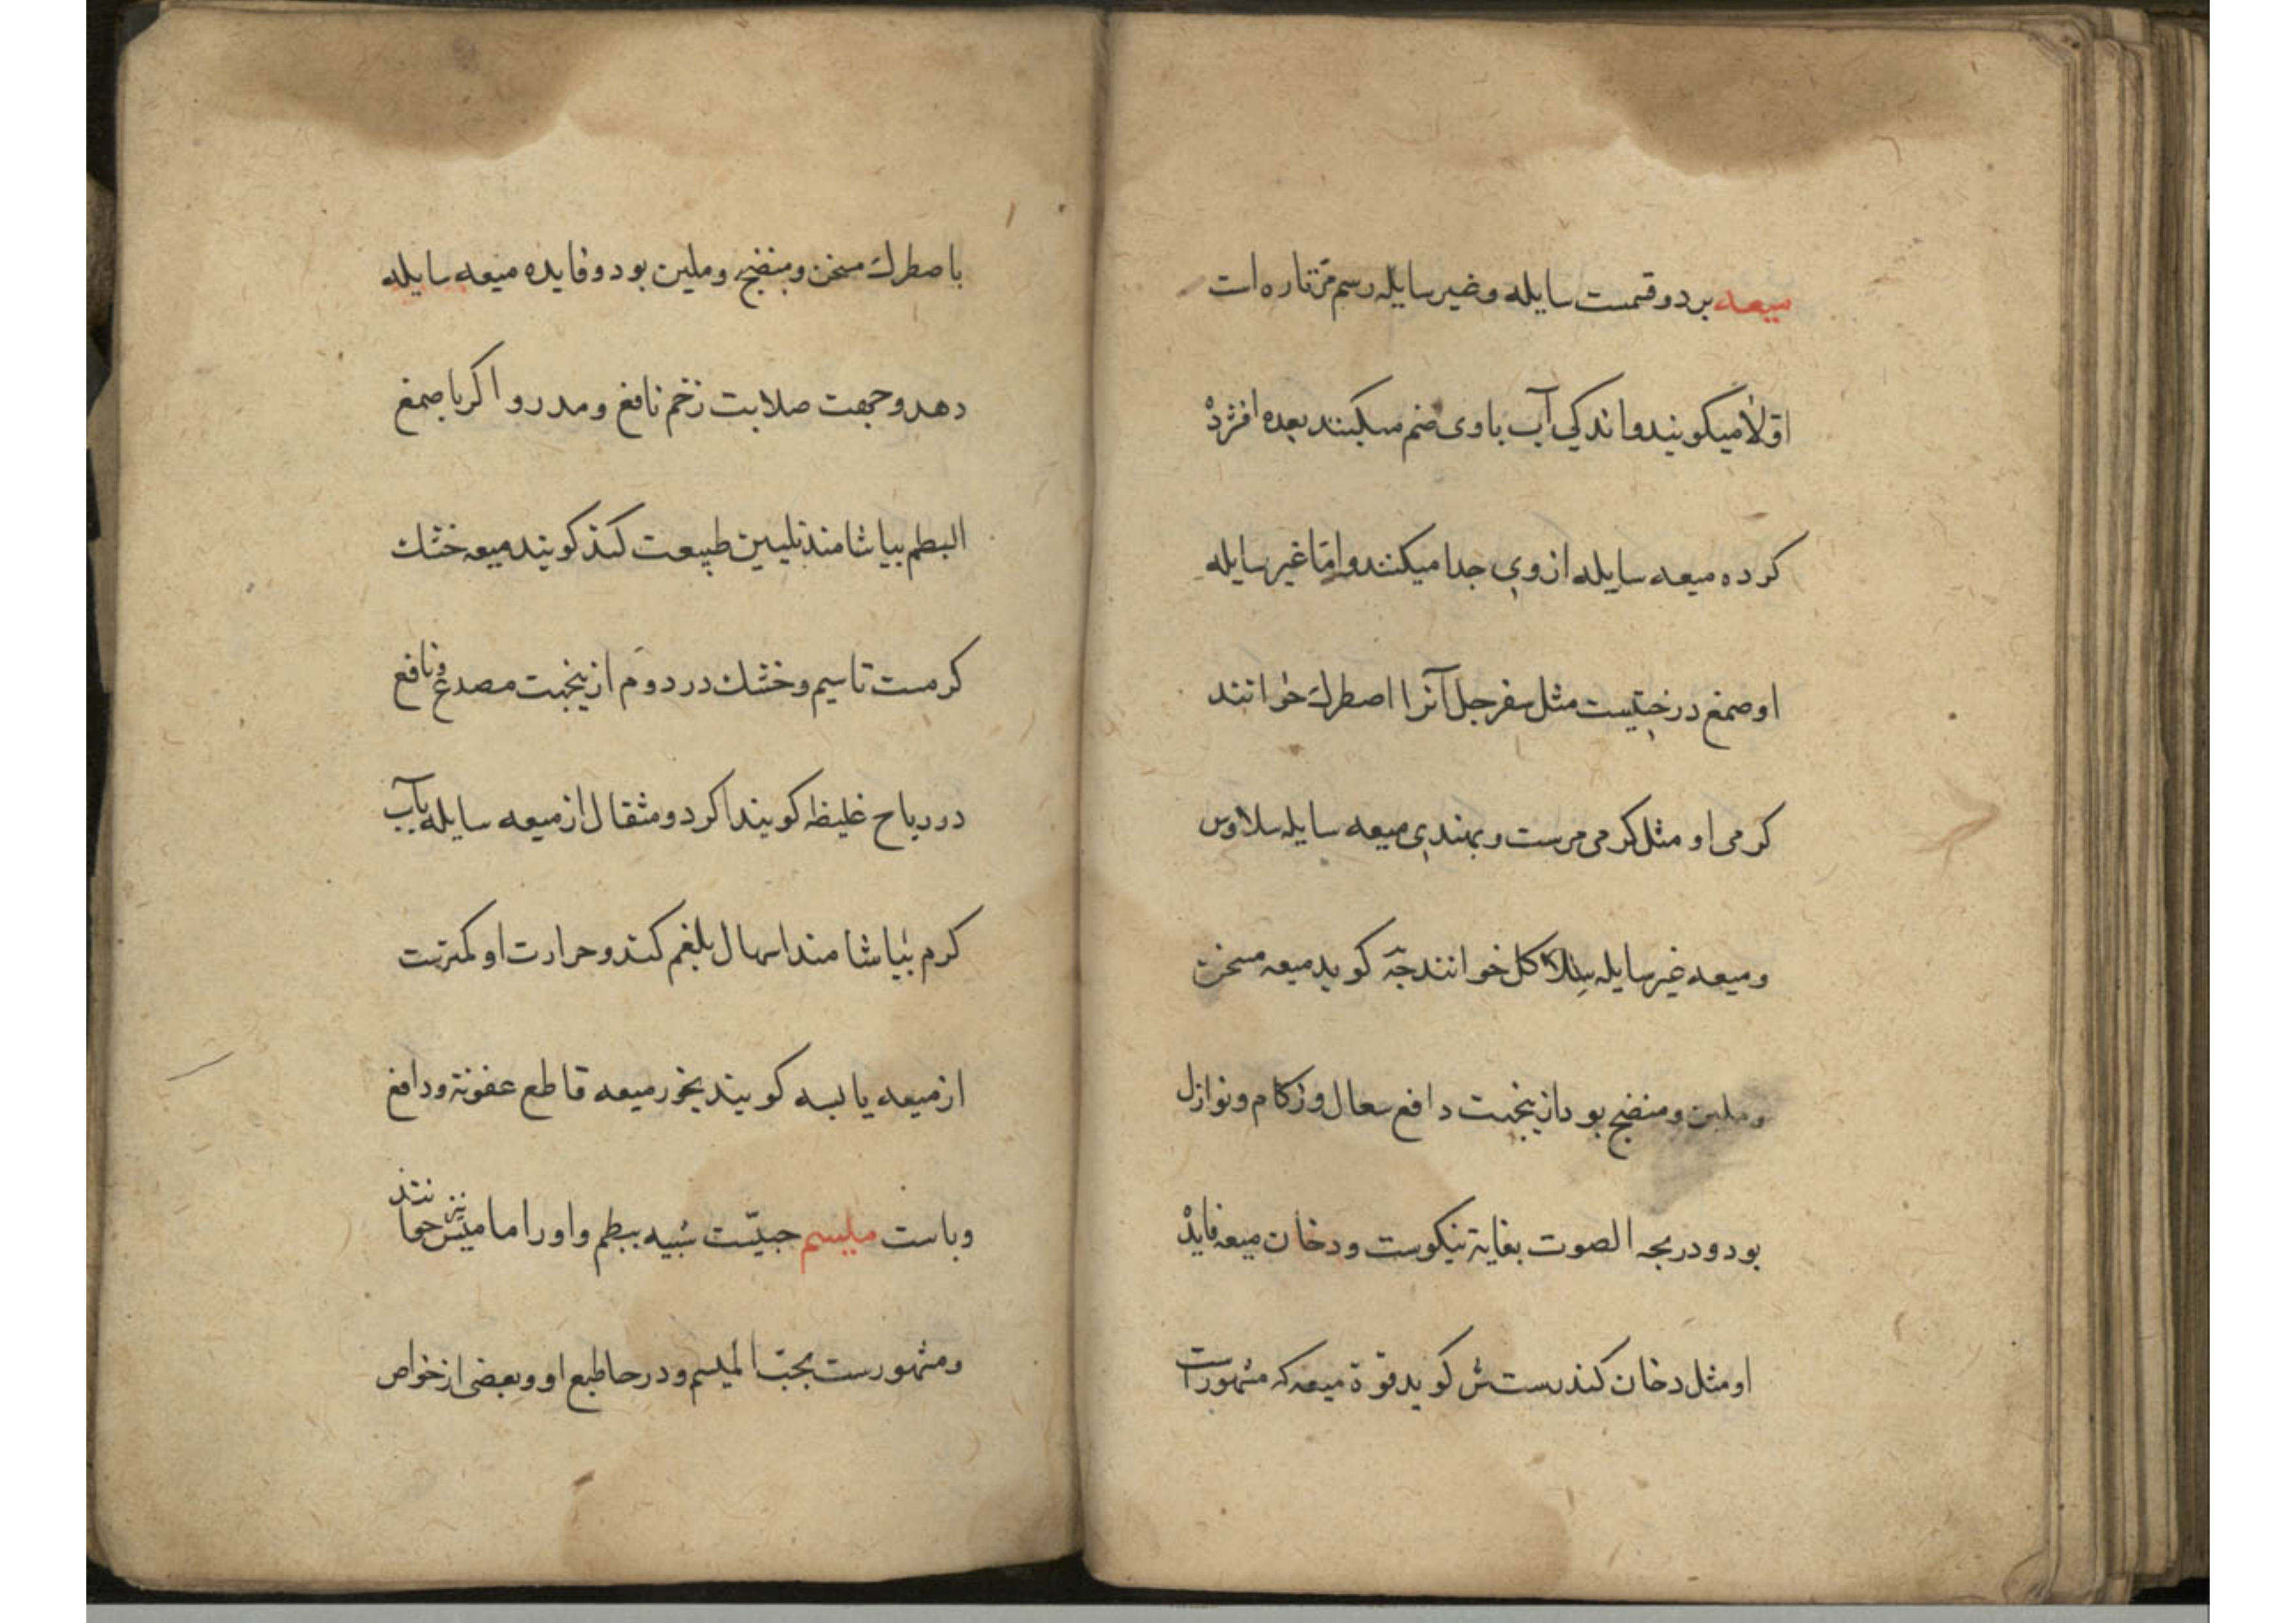 میعه بردو قسمست سایله و غیر سایله رسم مرتاره است
اوّلا میکوبندو اندکی آب باوی ضم میکنند بعده افشرده
کرده میعه سایله ازوی جدا میکنند و امّا غیر سایله
او صمغ درختیست مثل سفرجل آنرا اصطرک خوانند
کرمی او مثل کرمی مرست و بهندی میعه سایله سلاوس
و میعه غیر سایله سلاکل خوانند جّه کوید میعه مسخن
و ملین و منضج بود ازینجهت دافع سعال و زکام و نوازل
بود و در بحه الصوت بغایة نیکوست و دخان میعه فایده
او مثل دخان کندرست ش کوید قوة میعه که مشهورست
با صطرک مسخن و منضج و ملین بود و فایده میعه سایله
دهد و جهت صلابت زخم نافع و مدر و اکر با صمغ
البطم بیاشامند تلیین طبیعت کند کویند میعه خشک
کرمست تا سیم و خشک در دوم ازینجهت مصدع و نافع
در ریاح غلیظه کویند اکر دو مثقال از میعه سایله بآب
کرم بیاشامند اسهال بلغم کند و حرارت او کمترست
از میعه یابسه کویند بخور میعه قاطع عفونة و دافع
وباست میلیسم حبیّست شبیه ببطم و اورا مامیس نیز خوانند
و مشهورست بحبّ المیسم و در حا طبع او و بعضی از خواص